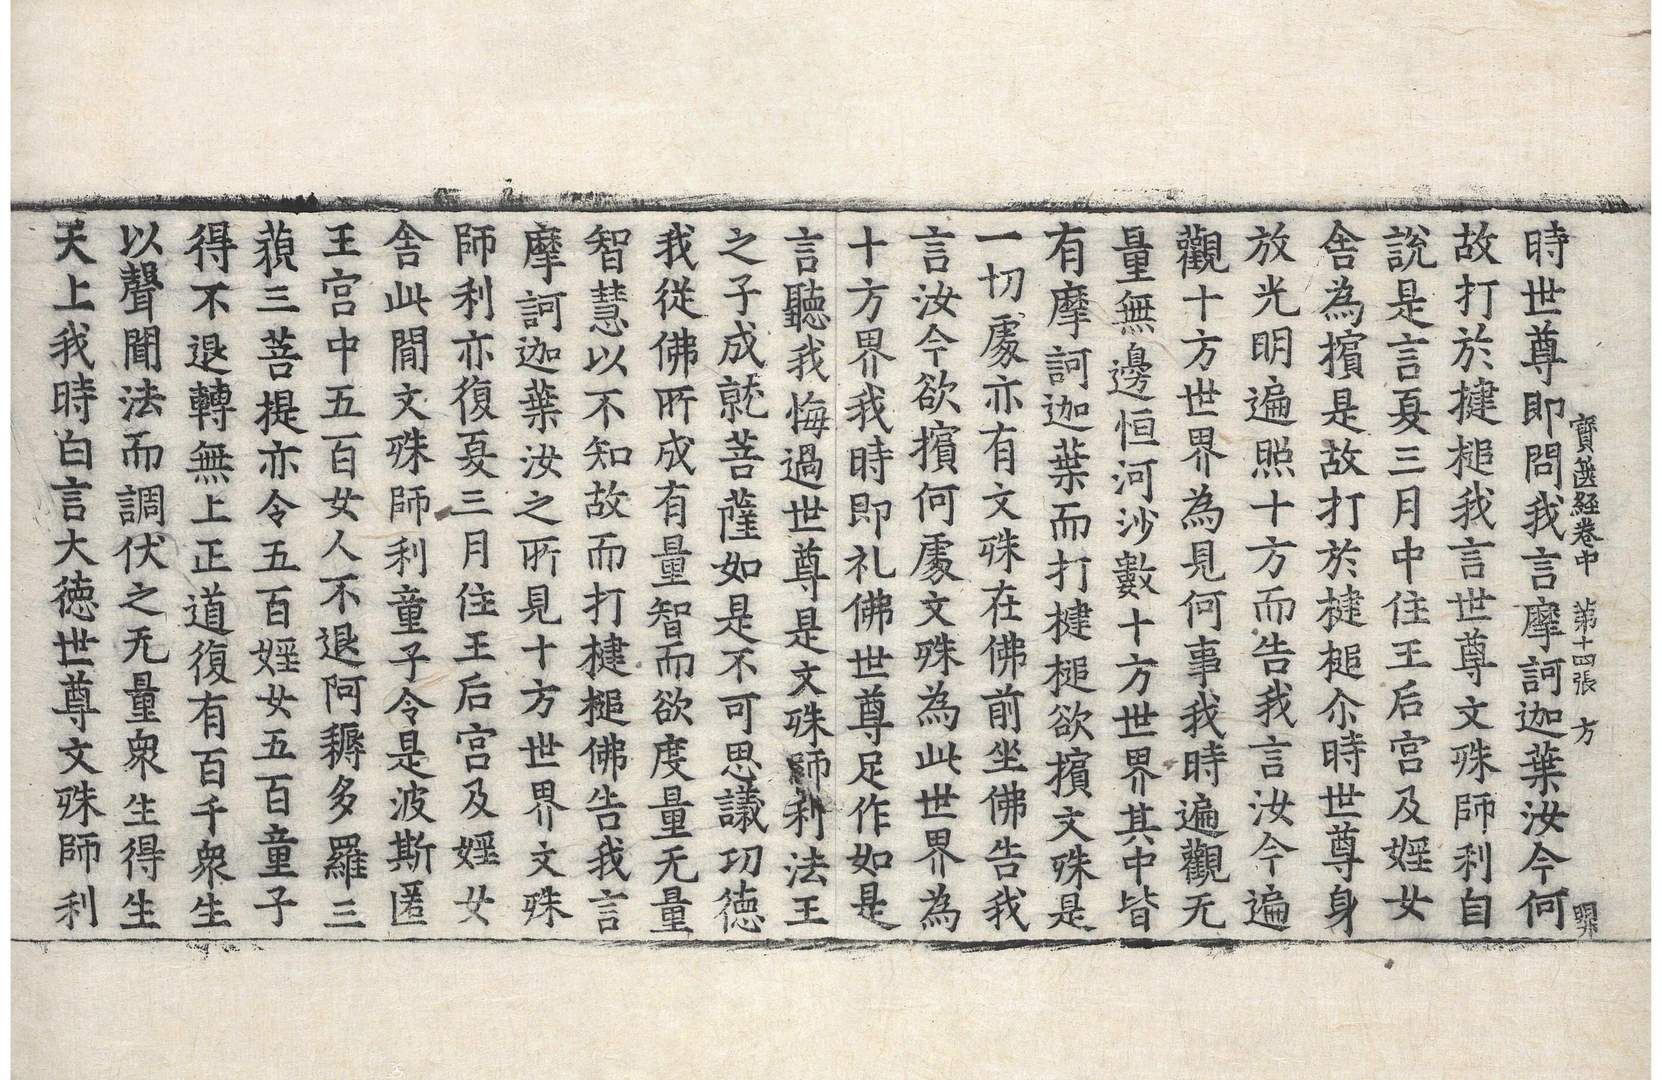 寶篋經卷中　第十四張　方
時世尊即問我言摩訶迦葉汝今何
故打於揵槌我言世尊文殊師利自
說是言夏三月中住王后宮及婬女
舍為擯是故打於揵槌尒時世尊身
放光明遍照十方而告我言汝今遍
觀十方世界為見何事我時遍觀无
量無邊恒河沙數十方世界其中皆
有摩訶迦葉而打揵槌欲擯文殊是
一切處亦有文殊在佛前坐佛告我
言汝今欲擯何處文殊為此世界為
十方界我時即礼佛世尊足作如是
言聽我悔過世尊是文殊師利法王
之子成就菩薩如是不可思議功德
我從佛所成有量智而欲度量无量
智慧以不知故而打揵槌佛告我言
摩訶迦葉汝之所見十方世界文殊
師利亦復夏三月住王后宮及婬女
舍此間文殊師利童子令是波斯匿
王宮中五百女人不退阿耨多羅三
藐三菩提亦令五百婬女五百童子
得不退轉無上正道復有百千衆生
以聲聞法而調伏之无量衆生得生
天上我時白言大德世尊文殊師利